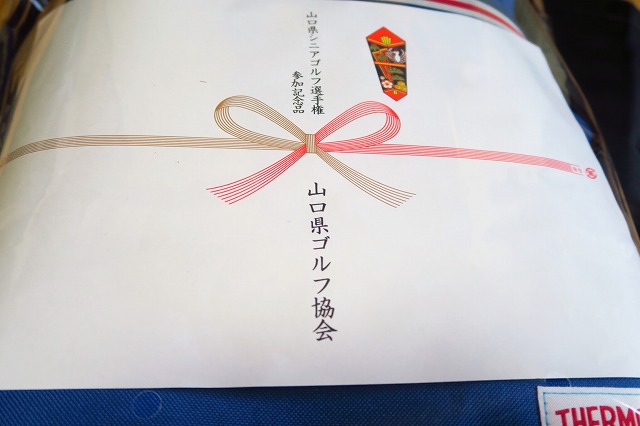 山口県シニアゴルフ選手権
参加記念品
山口県ゴルフ協会